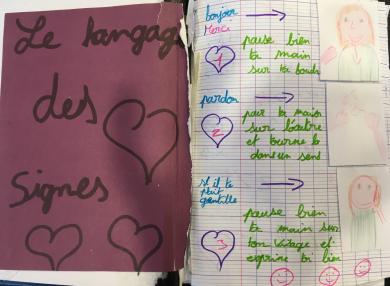 Le langag
des
Signes
bonjour
Merci
1
pause bien
ta main
sur ta bouch
pardon
2
par ta maison
sur l'autre
et tourne la
dans un sens
s'il te
plait
gentille
3
pause bien
ta main sur
ton visage et
exprine bi bien